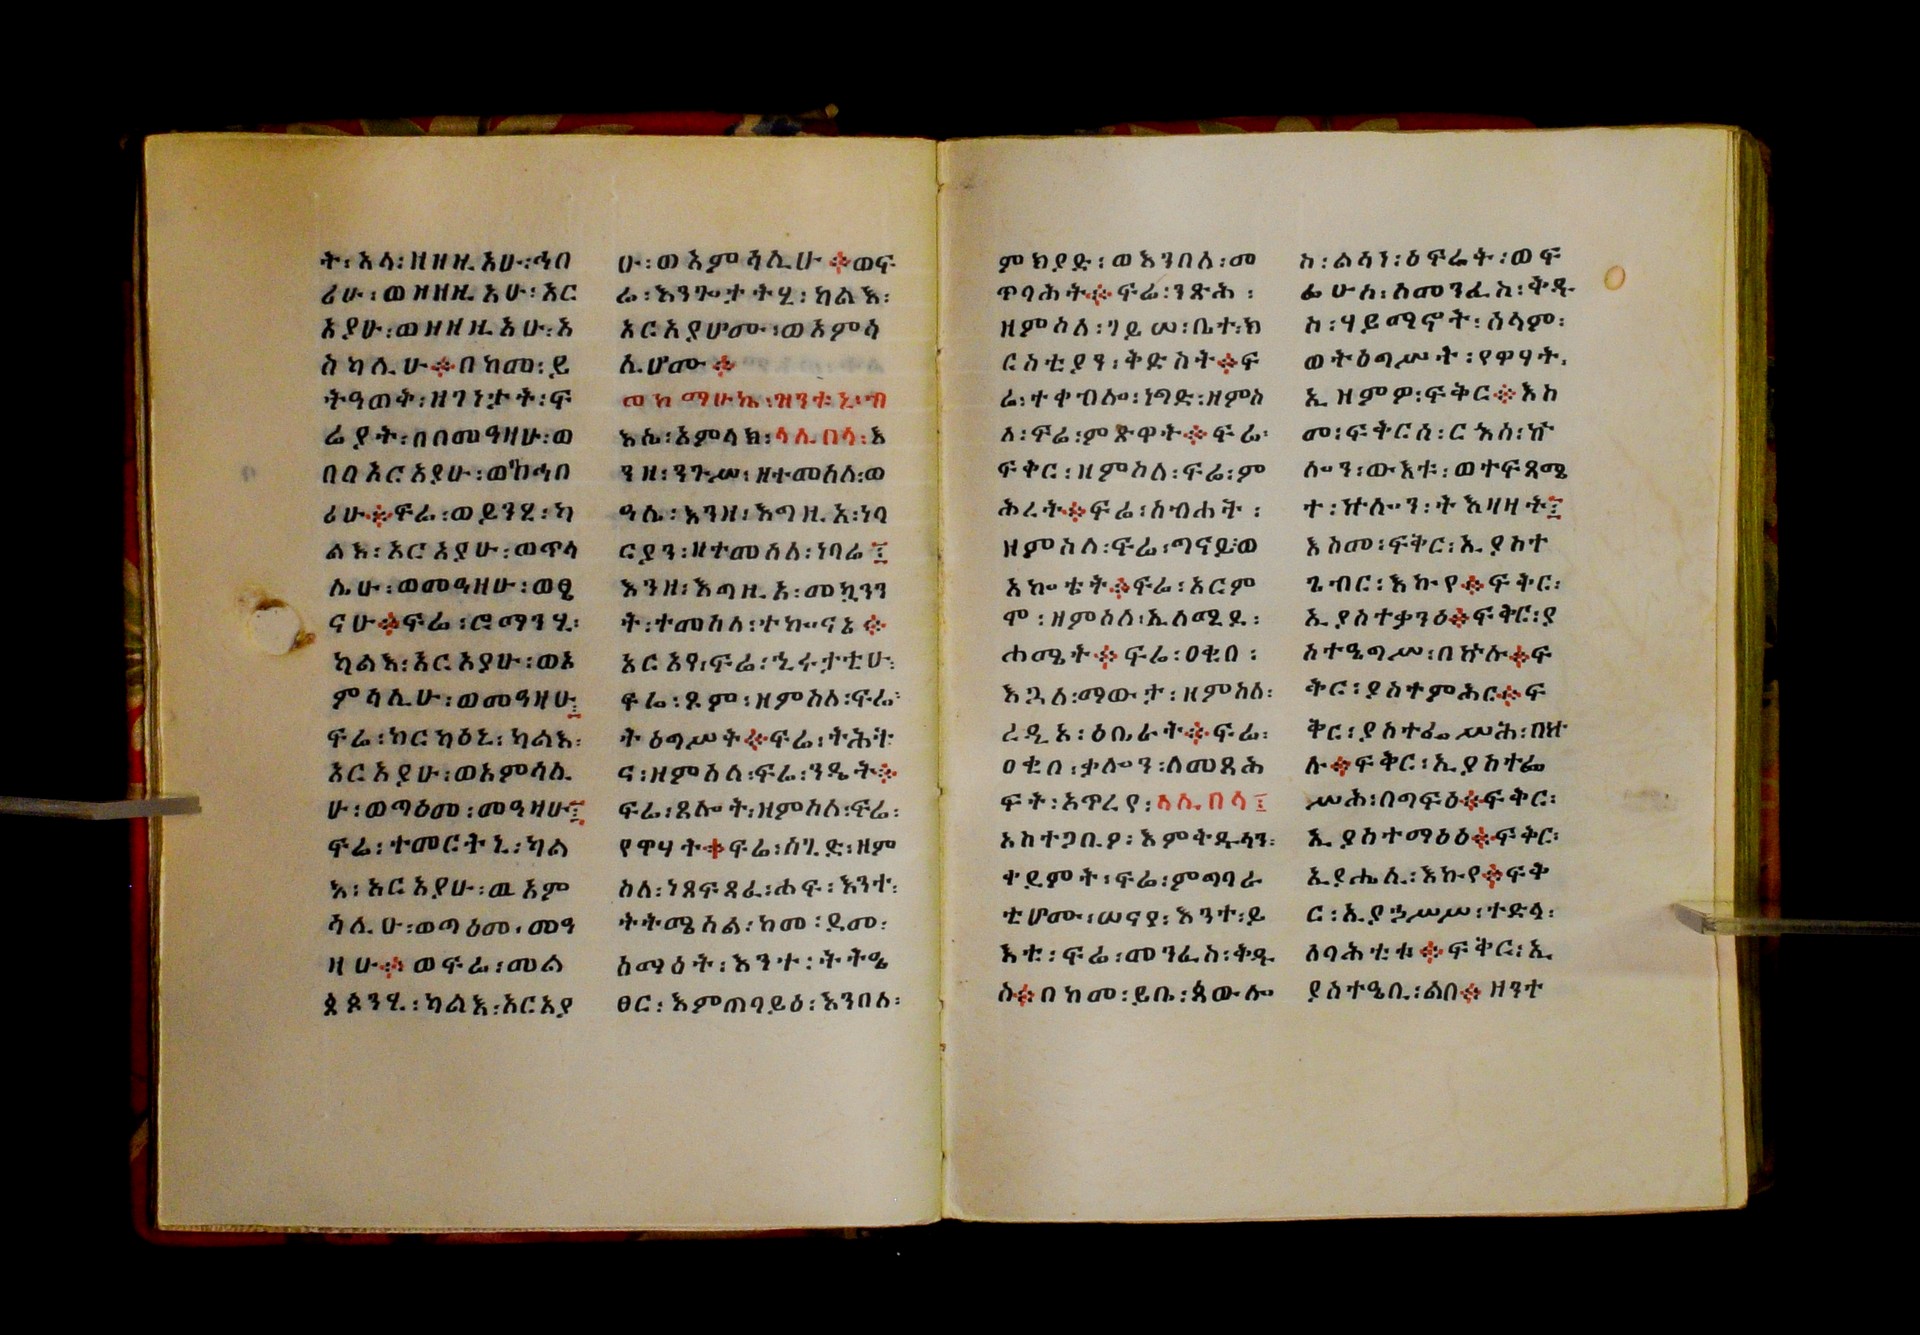 ት፡እላ፡ዘዘዚአሁ፡ኅበ
ሪሁ፡ወዘዘዚአሁ፡አር
አያሁ፡ወዘዘዚአሁ፡አ
ስካሊሁ፨በከመ፡ይ
ትዓወቅ፡ዘገነታት፡ፍ
ሬያት፡በበመዓዛሁ፡ወ
በበአርአያሁ፡ወኅበ
ሪሁ፨ፍሬ፡ወይንሂ፡ካ
ልእ፡አርአያሁ፡ወጥላ
ሊሁ፡ወመዓዛሁ፡ወፄ
ናሁ፨ፍሬ፡ሮማንሂ፡
ካልእ፡አርአያሁ፡ወአ
ምሳሊሁ፡ወመዓዛሁ፤
ፍሬ፡ከርካዕኒ፡ካልእ፡
አርአያሁ፡ወአምሳሊ
ሁ፡ወጣዕመ፡መዓዛሁ፤
ፍሬ፡ተመርትኒ፡ካል
እ፡አርአያሁ፡ወአም
ሳሊሁ፡ወጣዕመ፡መዓ
ዛሁ፨ወፍሬ፡መል
ጰጶንሂ፡ካልእ፡አርአያ
ሁ፡ወአምሳሊሁ፨ወፍ
ሬ፡እንጐታትሂ፡ካልእ፡
አርአያሆሙ፡ወአምሳ
ሊሆሙ፨
መከማሁኬ፡ዝንቱኒ፡ብ
እሴ፡አምላክ፡ላሊበላ፡አ
ንዘ፡ንጉሥ፡ዘተመሰለ፡ወ
ዓሴ፡እንዘ፡እግዚአ፡ነባ
ርያን፡ዘተመሰለ፡ነባሬ፤
እንዘ፡እግዚአ፡መኳንን
ት፡ተመሰለ፡ተኰናኔ፨
አርአየ፡ፍሬ፡ኂሩታቲሁ፡
ፍሬ፡ጾም፡ዘምስለ፡ፍሬ፡
ትዕግሥት፨ፍሬ፡ትሕት
ና፡ዘምስለ፡ፍሬ፡ንዴት፨
ፍሬ፡ጸሎት፡ዘምስለ፡ፍሬ፡
የዋሃት፨ፍሬ፡ስጊድ፡ዘም
ስለ፡ነጸፍጻፈ፡ሐፍ፡እንተ፡
ትትሜሰል፡ከመ፡ደመ፡
ሰማዕት፡እንተ፡ትትዌ
ፀር፡እምጠባይዕ፡እንበለ፡
ምክያድ፡ወእንበለ፡መ
ጥባሕት፨ፍሬ፡ንጽሕ፡
ዘምስለ፡ገይሠ፡ቤተ፡ክ
ርስቲያን፡ቅድስት፨ፍ
ሬ፡ተቀብሎ፡ነግድ፡ዘምስ
ለ፡ፍሬ፡ምጽዋት፨ፍሬ፡
ፍቅር፡ዘምስለ፡ፍሬ፡ም
ሕረት፨ፍሬ፡ስብሐት፡
ዘምስለ፡ፍሬ፡ጣናይ፡ወ
አኰቴት፨ፍሬ፡አርም
ሞ፡ዘምስለ፡ኢለሚደ፡
ሐሜት፨ፍሬ፡ዐቂበ፡
እጓለ፡ማውታ፡ዘምስለ፡
ረዲአ፡ዕቤራት፨ፍሬ፡
ዐቂበ፡ቃሎን፡ለመጻሕ
ፍት፡አጥረየ፡ላሊበላ፤
አስተጋቢዖ፡እምትዱላን፡
ቀደምት፡ፍሬ፡ምግባራ
ቲሆሙ፡ሠናየ፡እንተ፡ይ
እቲ፡ፍሬ፡መንፈስ፡ቅዱ
ስ፨በከመ፡ይቤ፡ጳውሎ
ስ፡ልሳነ፡ዕፍረት፡ወፍ
ፌሁሰ፡ለመንፈስ፡ቅዱ
ስ፡ሃይማኖት፡ሰላም፡
ወትዕግሥት፡የዋሃት፡
ኢዝምዎ፡ፍቅር፨እስ
መ፡ፍቅርሰ፡ርእሰ፡ኵ
ሎን፡ውእቱ፡ወተፍጻሜ
ተ፡ኵሎን፡ትእዛዛት፤
እስመ፡ፍቅር፡ኢያስተ
ጌብር፡እኩየ፨ፍቅር፡
ኢያስተቃንዕ፨ፍቅር፡ያ
ስተዔግሥ፡በኵሉ፨ፍ
ቅር፡ያስተምሕር፨ፍ
ቅር፡ያስተፌሥሕ፡በኵ
ሉ፨ፍቅር፡ኢያስተፌ
ሥሕ፡በግፍዕ፨ፍቅር፡
ኢያስተማዕዕ፨ፍቅር፡
ኢያሔሊ፡እኩየ፨ፍቅ
ር፡ኢያኃሥሥ፡ተድላ፡
ለባሕቲቱ፨ፍቅር፡ኢ
ያስተዔቢ፡ልበ፨ዘንተ